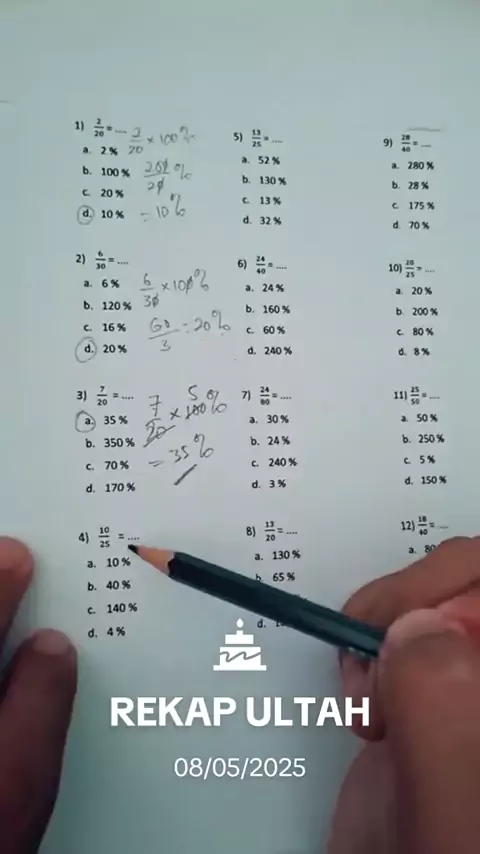 1) 2/20 = .... 2/20 × 100%
a. 2 %
b. 100 % 200/20 %
c. 20 %
d. 10 % = 10%
2) 6/30 = ....
a. 6 % 6/30 × 100%
b. 120 %
c. 16 % 60/3 = 20%
d. 20 %
3) 7/20 = .... 7/20 × 100% 5
a. 35 %
b. 350 % = 35%
c. 70 %
d. 170 %
4) 10/25 = ....
a. 10 %
b. 40 %
c. 140 %
d. 4 %
5) 13/25 = ....
a. 52 %
b. 130 %
c. 13 %
d. 32 %
6) 24/40 = ....
a. 24 %
b. 160 %
c. 60 %
d. 240 %
7) 24/80 = ....
a. 30 %
b. 24 %
c. 240 %
d. 3 %
8) 13/20 = ....
a. 130 %
b. 65 %
d.
9) 28/40 = ....
a. 280 %
b. 28 %
c. 175 %
d. 70 %
10) 20/25 = ....
a. 20 %
b. 200 %
c. 80 %
d. 8 %
11) 25/50 = ....
a. 50 %
b. 250 %
c. 5 %
d. 150 %
12) 18/40 = ....
a. 80
REKAP ULTAH
08/05/2025